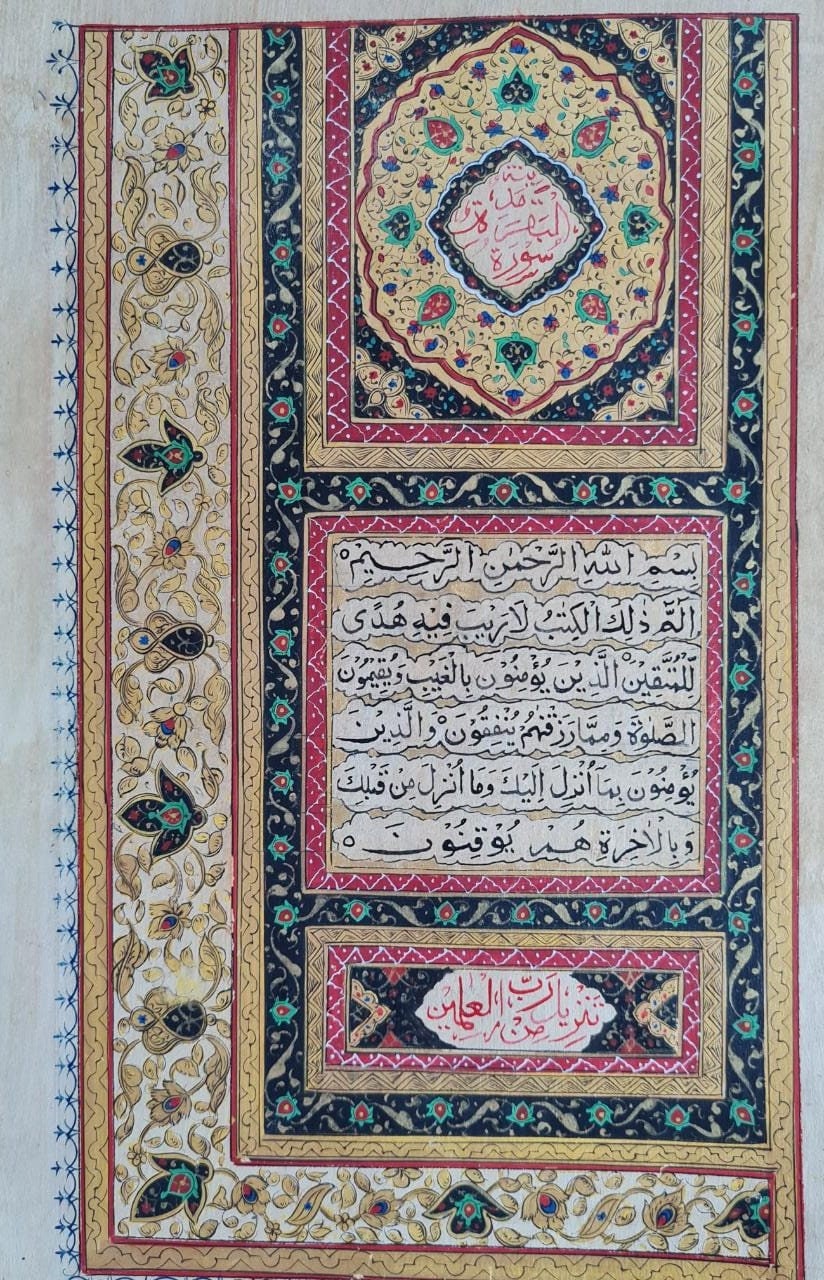 سُورَةُ
البَقَرَةِ
مَدَنِيَّة
بِسْمِ اللهِ الرَّحْمٰنِ الرَّحِيْمِ ○
الٓمّٓ ذٰلِكَ الْكِتٰبُ لَا رَيْبَ فِيْهِ هُدًى
لِّلْمُتَّقِيْنَ ○ الَّذِيْنَ يُؤْمِنُوْنَ بِالْغَيْبِ وَيُقِيْمُوْنَ
الصَّلٰوةَ وَمِمَّا رَزَقْنٰهُمْ يُنْفِقُوْنَ ○ وَالَّذِيْنَ
يُؤْمِنُوْنَ بِمَا اُنْزِلَ اِلَيْكَ وَمَا اُنْزِلَ مِنْ قَبْلِكَ
وَبِالْاٰخِرَةِ هُمْ يُوْقِنُوْنَ ○
تَنْزِيْلٌ مِّنْ رَّبِّ الْعٰلَمِيْنَ